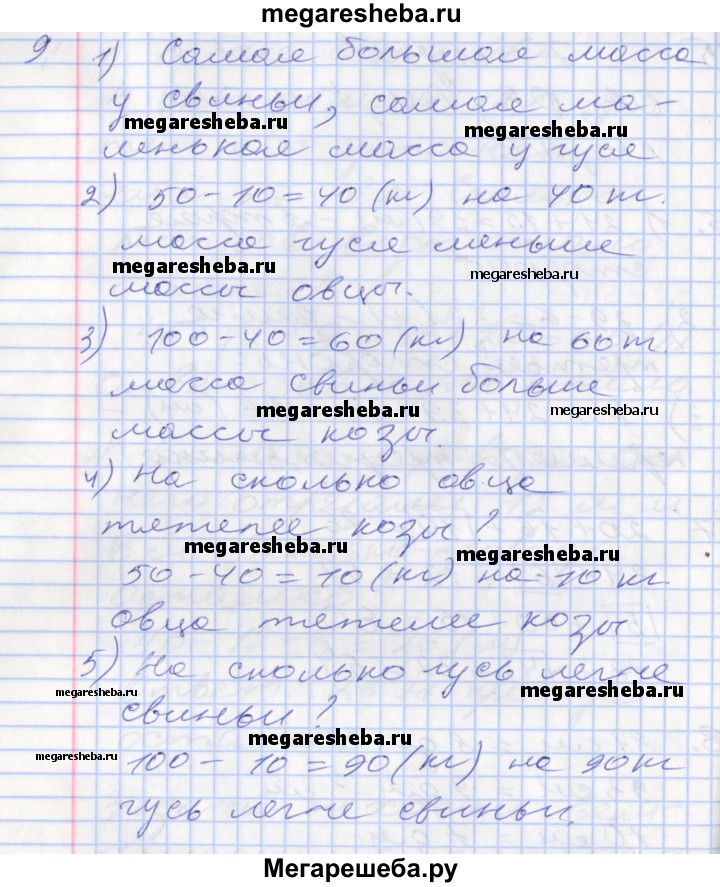 megaresheba.ru
9 1) Самая большая масса
у свиньи, самая ма-
megaresheba.ru megaresheba.ru
ленькая масса у гуся
2) 50-10=40 (кг) на 40 кг.
масса гуся меньше
megaresheba.ru megaresheba.ru
массы овцы.
3) 100-40=60 (кг) на 60 кг.
масса свиньи больше
megaresheba.ru megaresheba.ru
массы козы.
4) На сколько овца
тяжелее козы?
megaresheba.ru megaresheba.ru
50-40=10 (кг) на 10 кг
овца тяжелее козы
5) На сколько гусь легче
megaresheba.ru megaresheba.ru
свиньи?
megaresheba.ru megaresheba.ru
100-10=90 (кг) на 90 кг
гусь легче свиньи.
Мегарешеба.ру